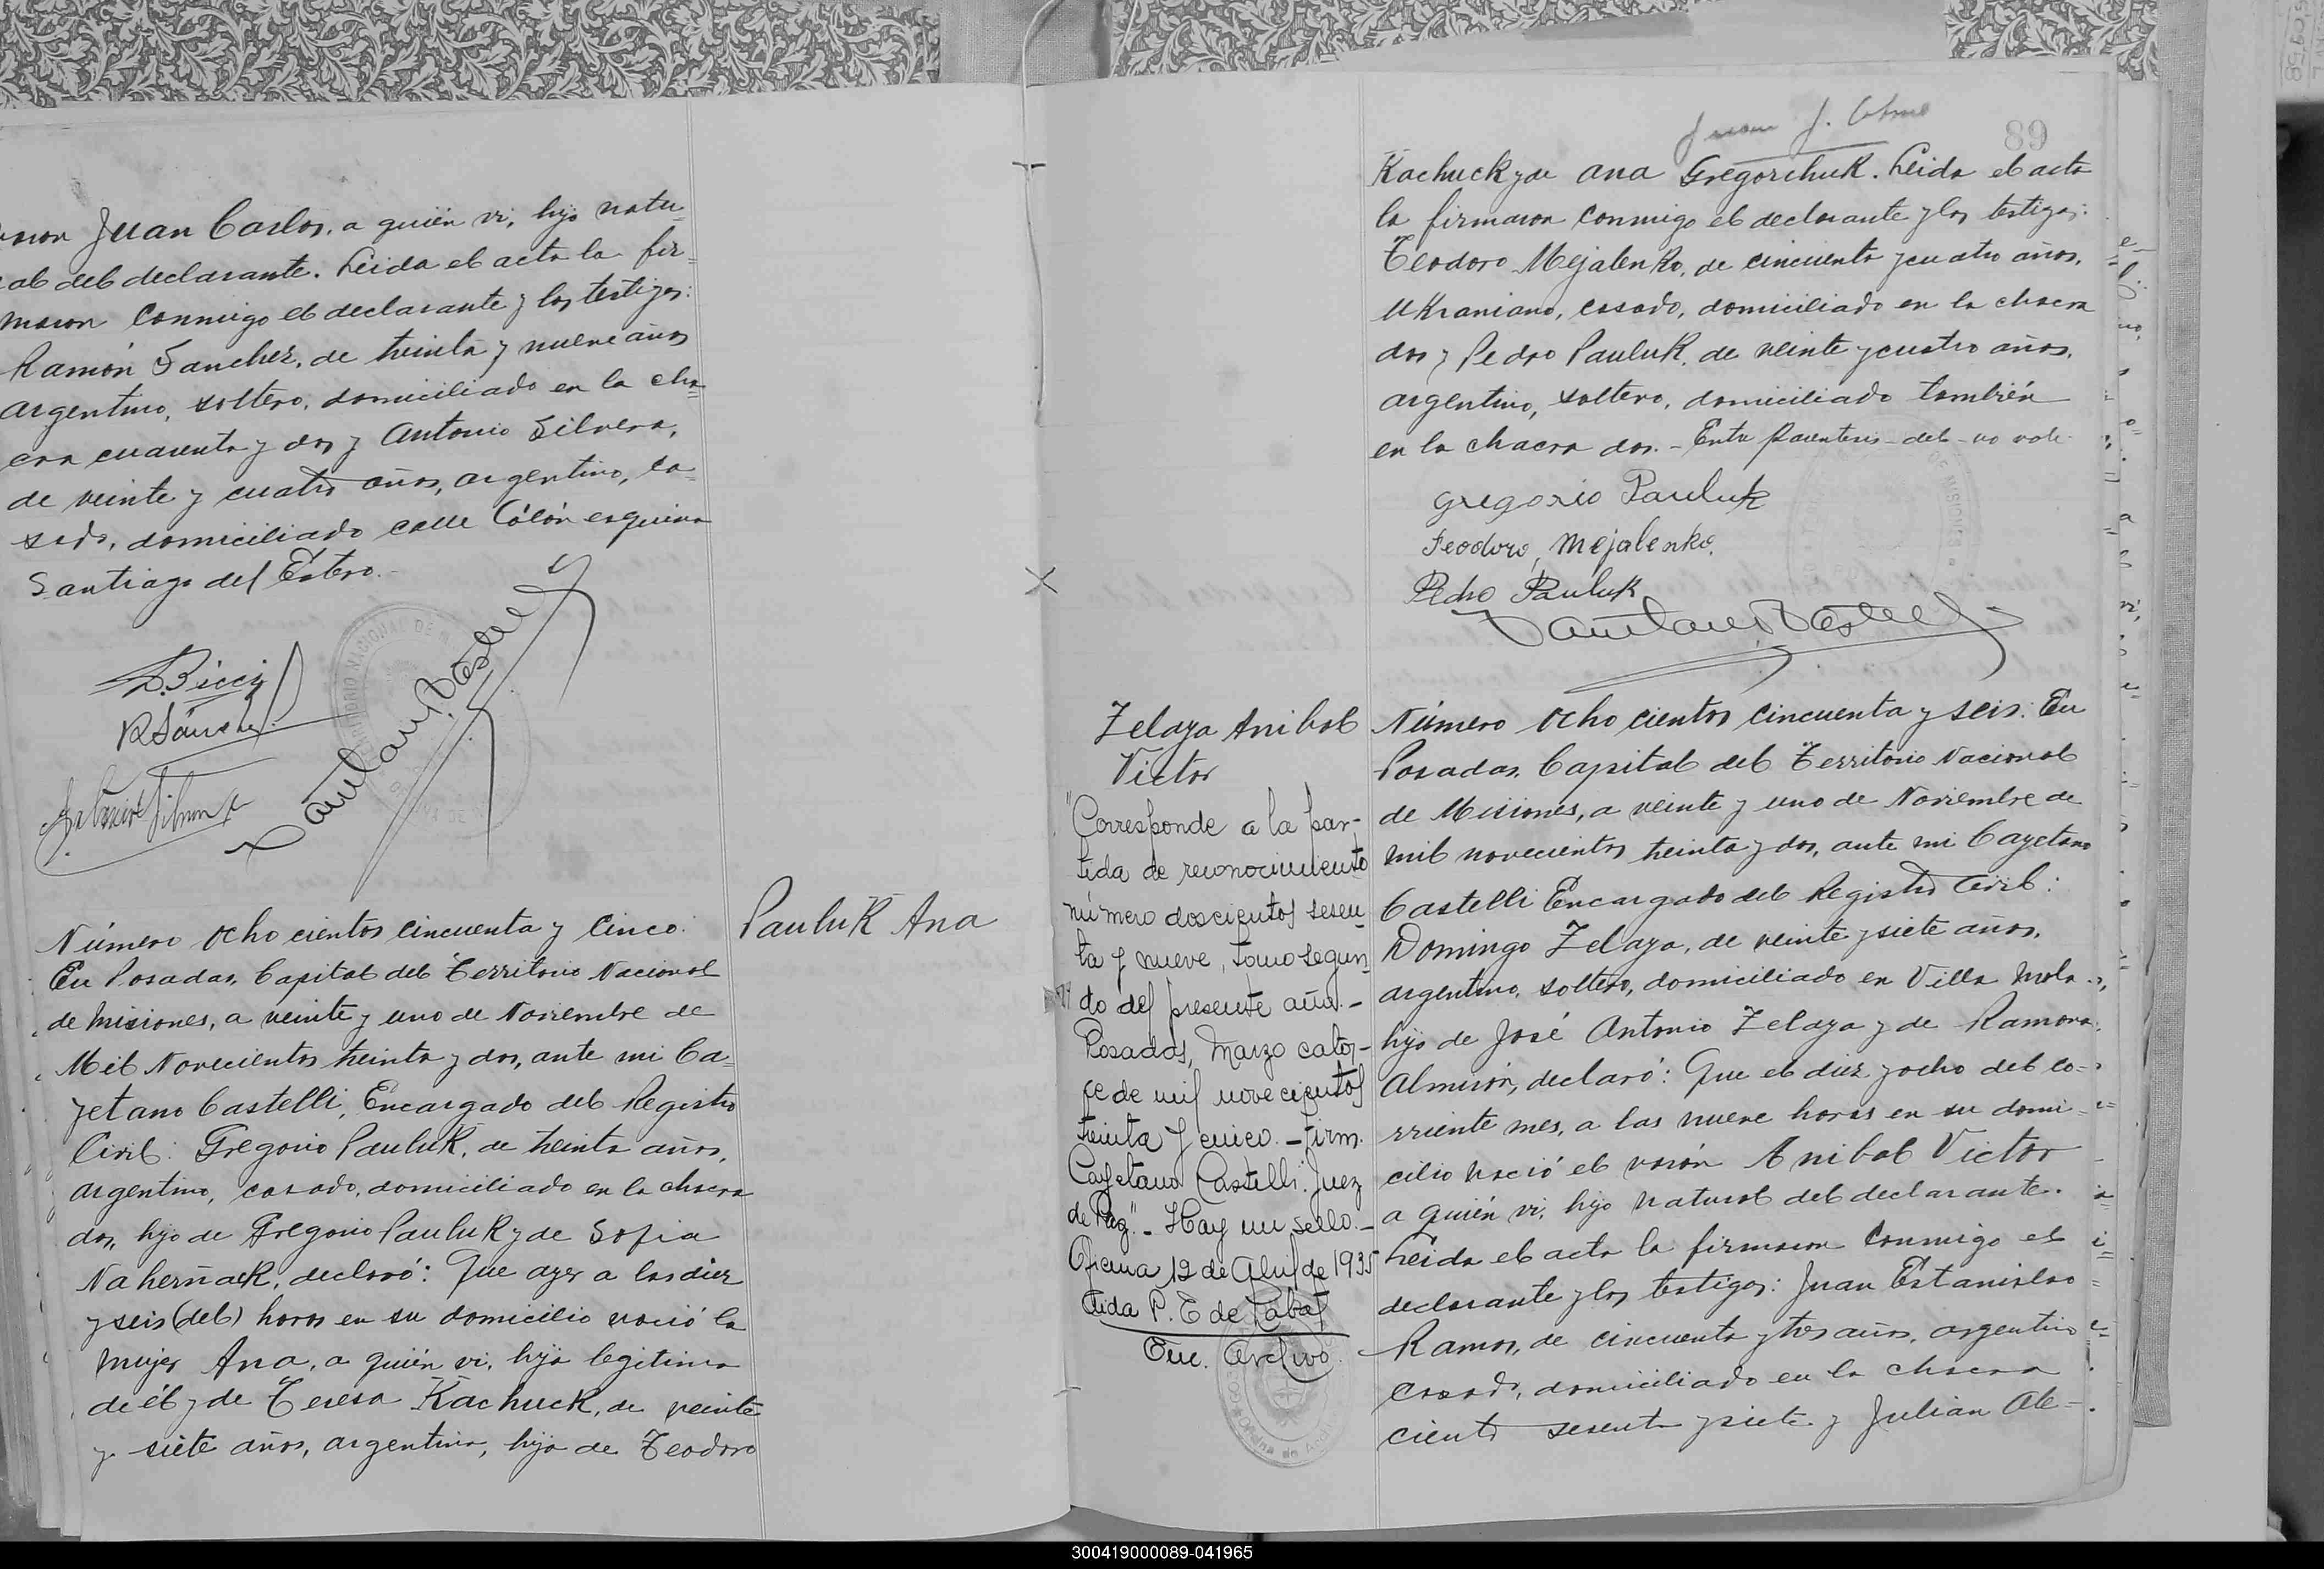 Juan Carlos, a quién vi, hijo natu=
ral del declarante. Leida el acta la fir=
maron conmigo el declarante y los testigos:
Ramón Sanchez, de treinta y nueve años
argentino, soltero, domiciliado en la cha=
cra cuarenta y dos y Antonio Silvera,
de veinte y cuatro años, argentino, ca=
sado, domiciliado calle Cólón esquina
Santiago del Estero.-
D. Ricci
R Sánchez
Número Ocho cientos cincuenta y cinco:
En Posadas, Capital del Territorio Nacional
de Misiones, a veinte y uno de Noviembre de
Mil Novecientos treinta y dos, ante mi Ca=
yetano Castelli, Encargado del Registro
Civil: Gregorio Pauluk, de treinta años,
argentino, casado, domiciliado en la chacra
dos, hijo de Gregorio Pauluk y de Sofia
Naherñack, declaró: Que ayer a las diez
y seis (del) horas en su domicilio nació la
mujer Ana, a quién vi, hija legitima
de él y de Teresa Kachuck, de veinte
y siete años, argentina, hija de Teodoro
Pauluk Ana
89
Kachuck y de Ana Gregorchuk. Leida el acta
la firmaron conmigo el declarante y los testigos:
Teodoro Mejalenko, de cincuenta y cuatro años,
Ukraniano, casado, domiciliado en la chacra
dos y Pedro Pauluk, de veinte y cuatro años,
argentino, soltero, domiciliado también
en la chacra dos.- Entre parentesis - del - no vale
Gregorio Pauluk
Teodoro, Mejalenko.
Pedro Pauluk
Zelaya Anibal
Victor
"Corresponde a la par-
tida de reconocimiento
número doscientos sesen
ta y nueve, tomo segun
do del presente año.-
Posadas, Marzo cator-
ce de mil novecientos
treinta y cinco.- Firm.
Cayetano Castelli. Juez
de Paz".- Hay un sello.-
Oficina 12 de Abril de 1935
Aida P. E de
Enc. Archivo
Número Ocho cientos cincuenta y seis: En
Posadas, Capital del Territorio Nacional
de Misiones, a veinte y uno de Noviembre de
mil novecientos treinta y dos, ante mi Cayetano
Castelli Encargado del Registro Civil:
Domingo Zelaya, de veinte y siete años,
argentino, soltero, domiciliado en Villa Mola
hijo de José Antonio Zelaya y de Ramona
Almirón, declaró: Que el diez y ocho del co-
rriente mes, a las nueve horas en su domi=
cilio nació el varón Anibal Victor
a quién vi, hijo natural del declarante.
Leida el acta la firmaron conmigo el
declarante y los testigos: Juan Estanislao
Ramos, de cincuenta y tres años, argentino
casado, domiciliado en la chacra
ciento sesenta y siete y Julian Ale=
300419000089-041965